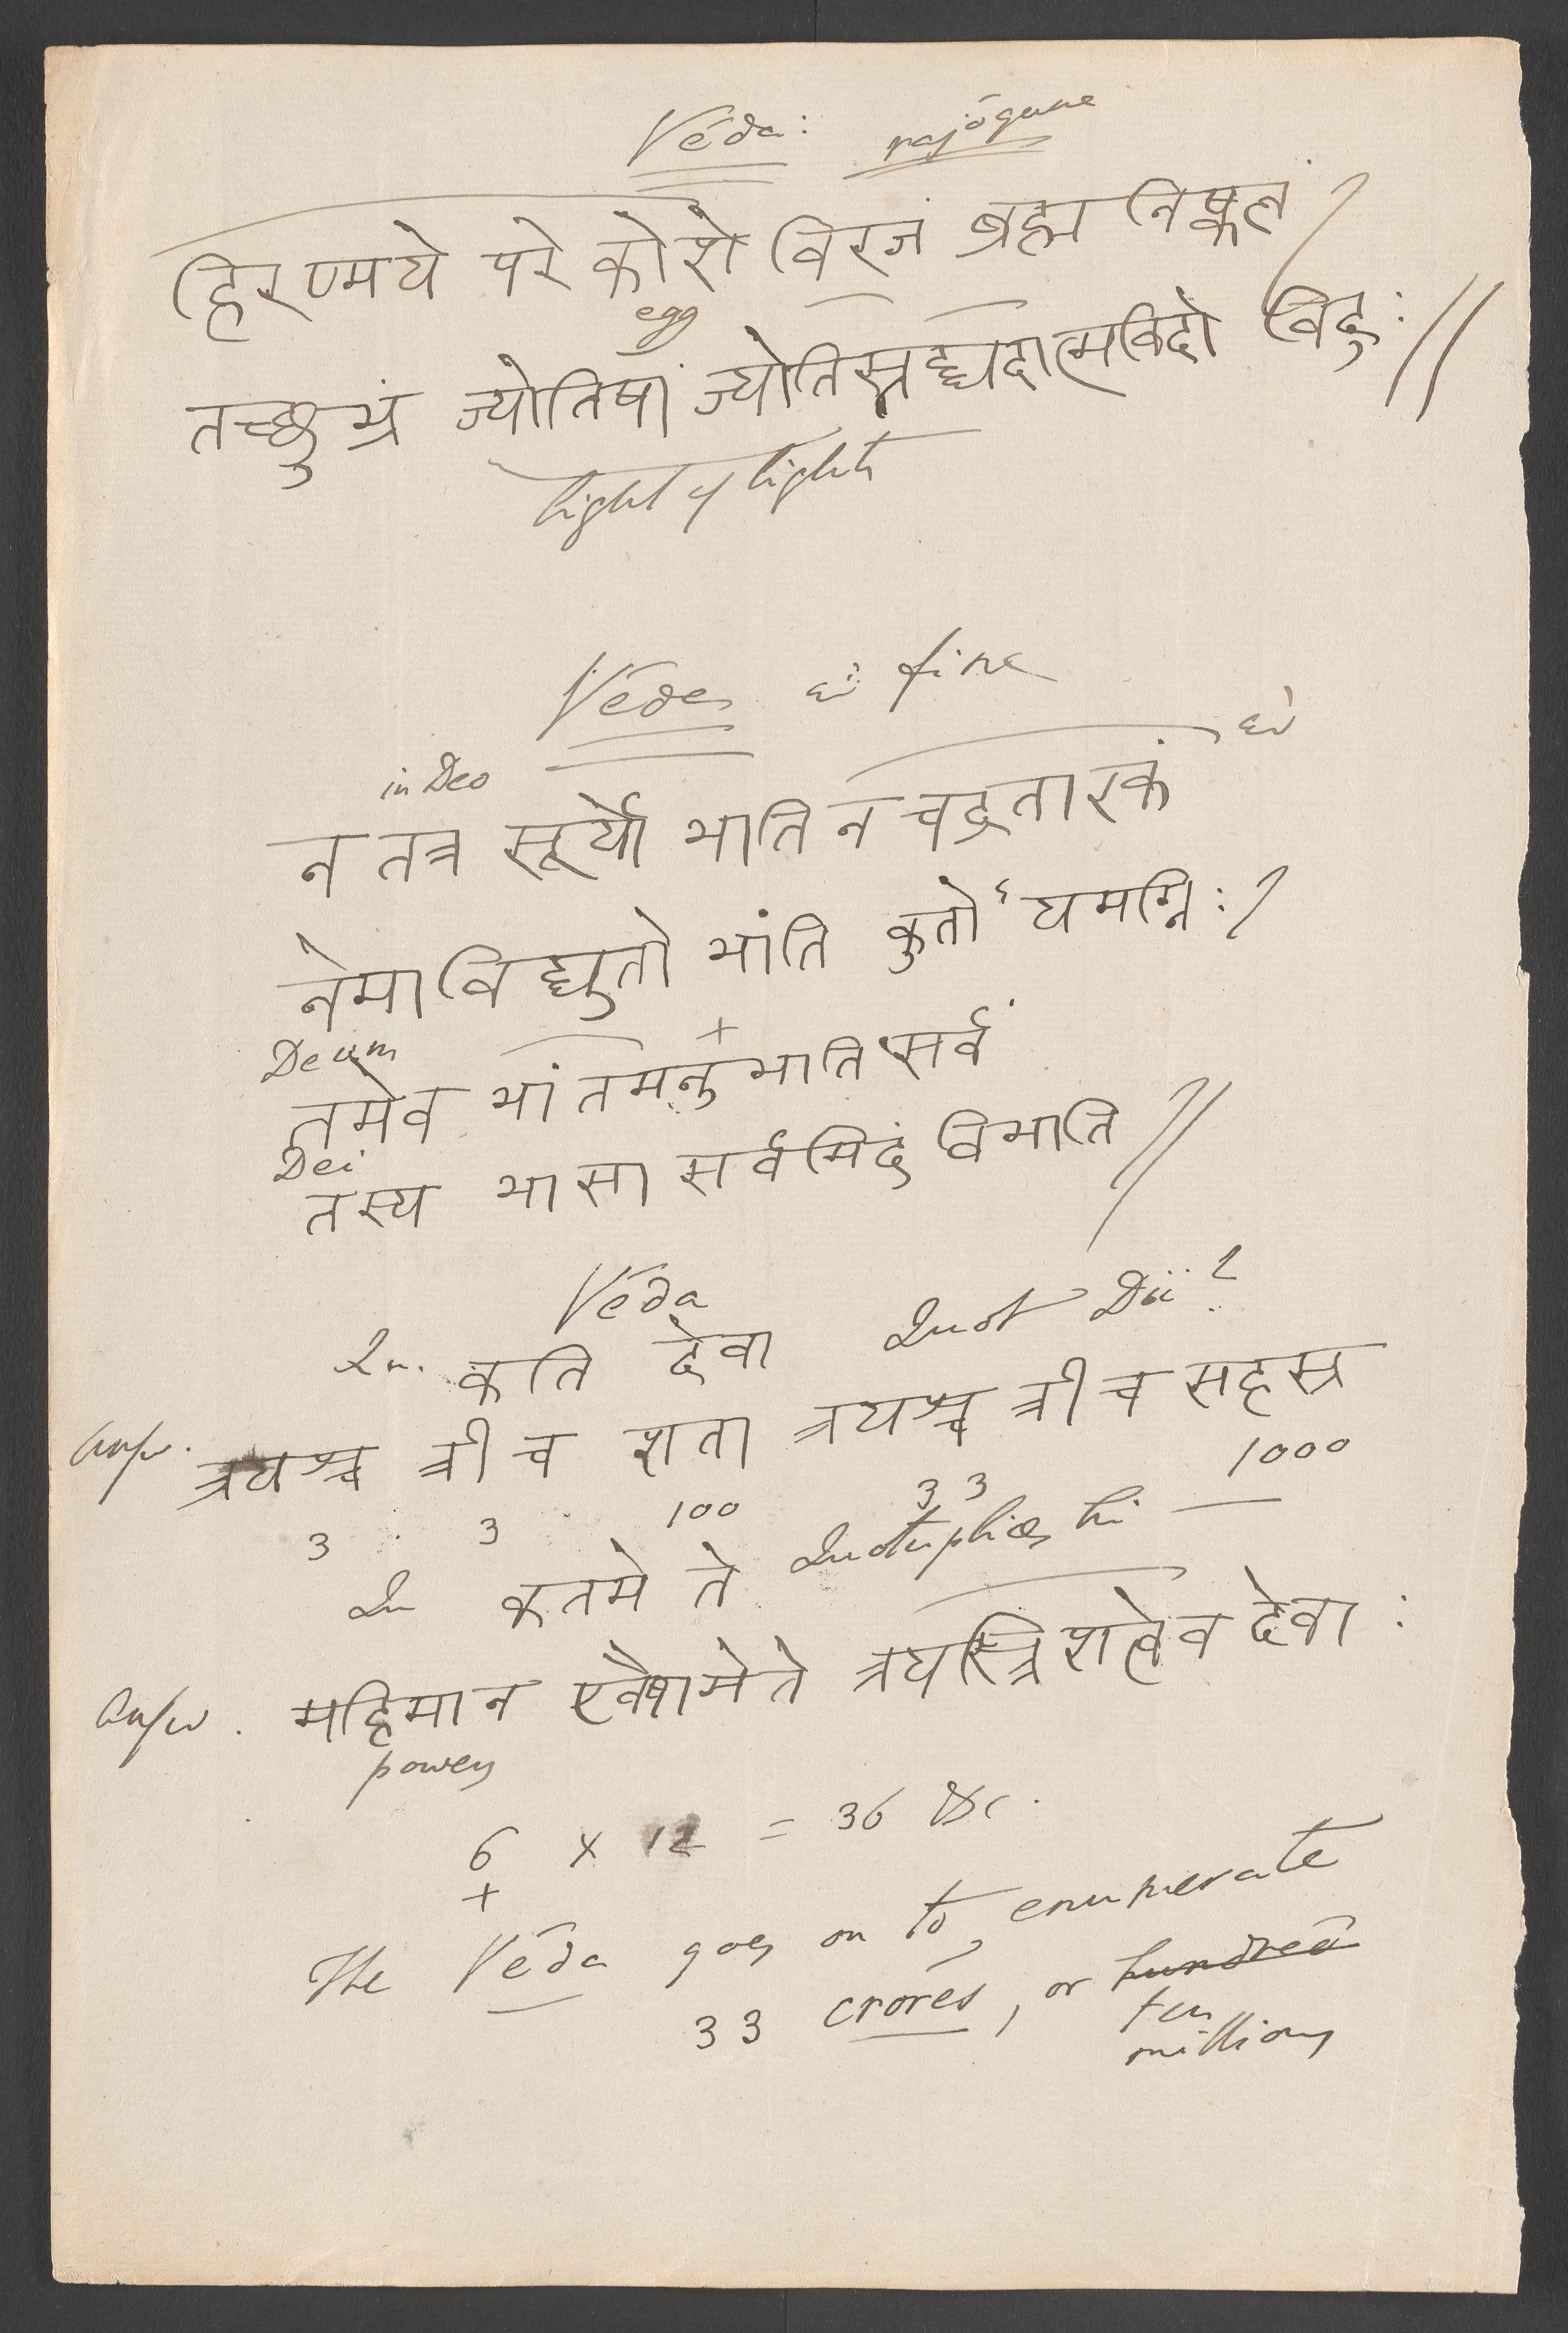 Véda: rajōgune
हिरण्मये परे कोशे विरजं ब्रह्म निष्कलं /
egg
तच्छुभ्रं ज्योतिषां ज्योतिस्तद्यदात्मविदो विदुः //
light of lights
Védes fine
in Deo
न तत्र सूर्यो भाति न चद्रतारकं
नेमा विद्युतो भांति कुतो ऽयमग्निः /
Deum +
तमेव भांतमनुभाति सर्वं
Dei
तस्य भासा सर्वमिदं विभाति //
Véda
Qu. कति देवा Quot Dii?
Answ. त्रयश्च त्री च शता त्रयश्च त्री च सहस्र
3 3 100 3 3 1000
Qu कतमे ते Quotuplices hi
Answ. महिमान एवैषामेते त्रयस्त्रिंशत्वेव देवा:
powers
6 x 12 = 36 &c.
+
The Véda goes on to enumerate
33 crores, or hundred
ten
millions